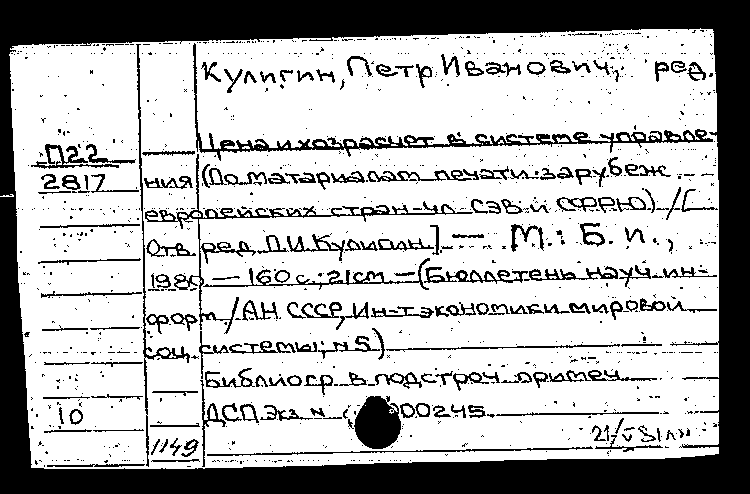 Кулигин, Петр Иванович, ред.
Цена и хозрасчет в системе управле-
П22
2817
ния (По материалам печати зарубеж.
европейских стран-чл. СЭВ и СФРЮ) / [
Отв. ред. П.И. Кулигин] — М.: Б. и.,
1980 — 160 с.; 21 см. — (Бюллетень науч. ин-
форм. / АН СССР, Ин-т экономики мировой
соц. системы; N 5)
Библиогр. в подстроч. примеч.
10
ДСП. Экз. N 000245
1149
21/V 81